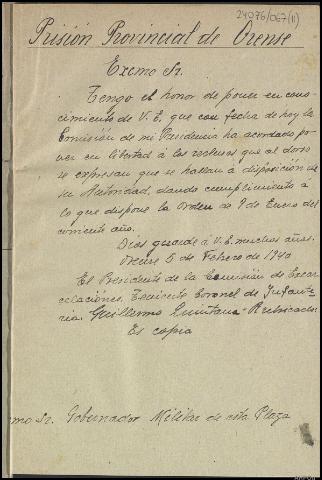 24076/067(11)
Prisión Provincial de Orense
Excmo Sr.
Tengo el honor de poner en cono-
cimiento de V.E. que con fecha de hoy la
Comisión de mi Presidencia ha acordado po-
ner en libertad á los reclusos que al dorso
se expresan que se hallan á disposición de
su Autoridad, dando cumplimiento á
lo que dispone la Orden de 9 de Enero del
corriente año.
Dios guarde á V.E. muchos años.
Orense 5 de Febrero de 1940
El Presidente de la Comisión de Excar-
celaciónes, Teniente Coronel de Infante-
ria. Guillermo Quintana - Rubricado.
Es copia
mo Sr. Gobernador Militar de esta Plaza